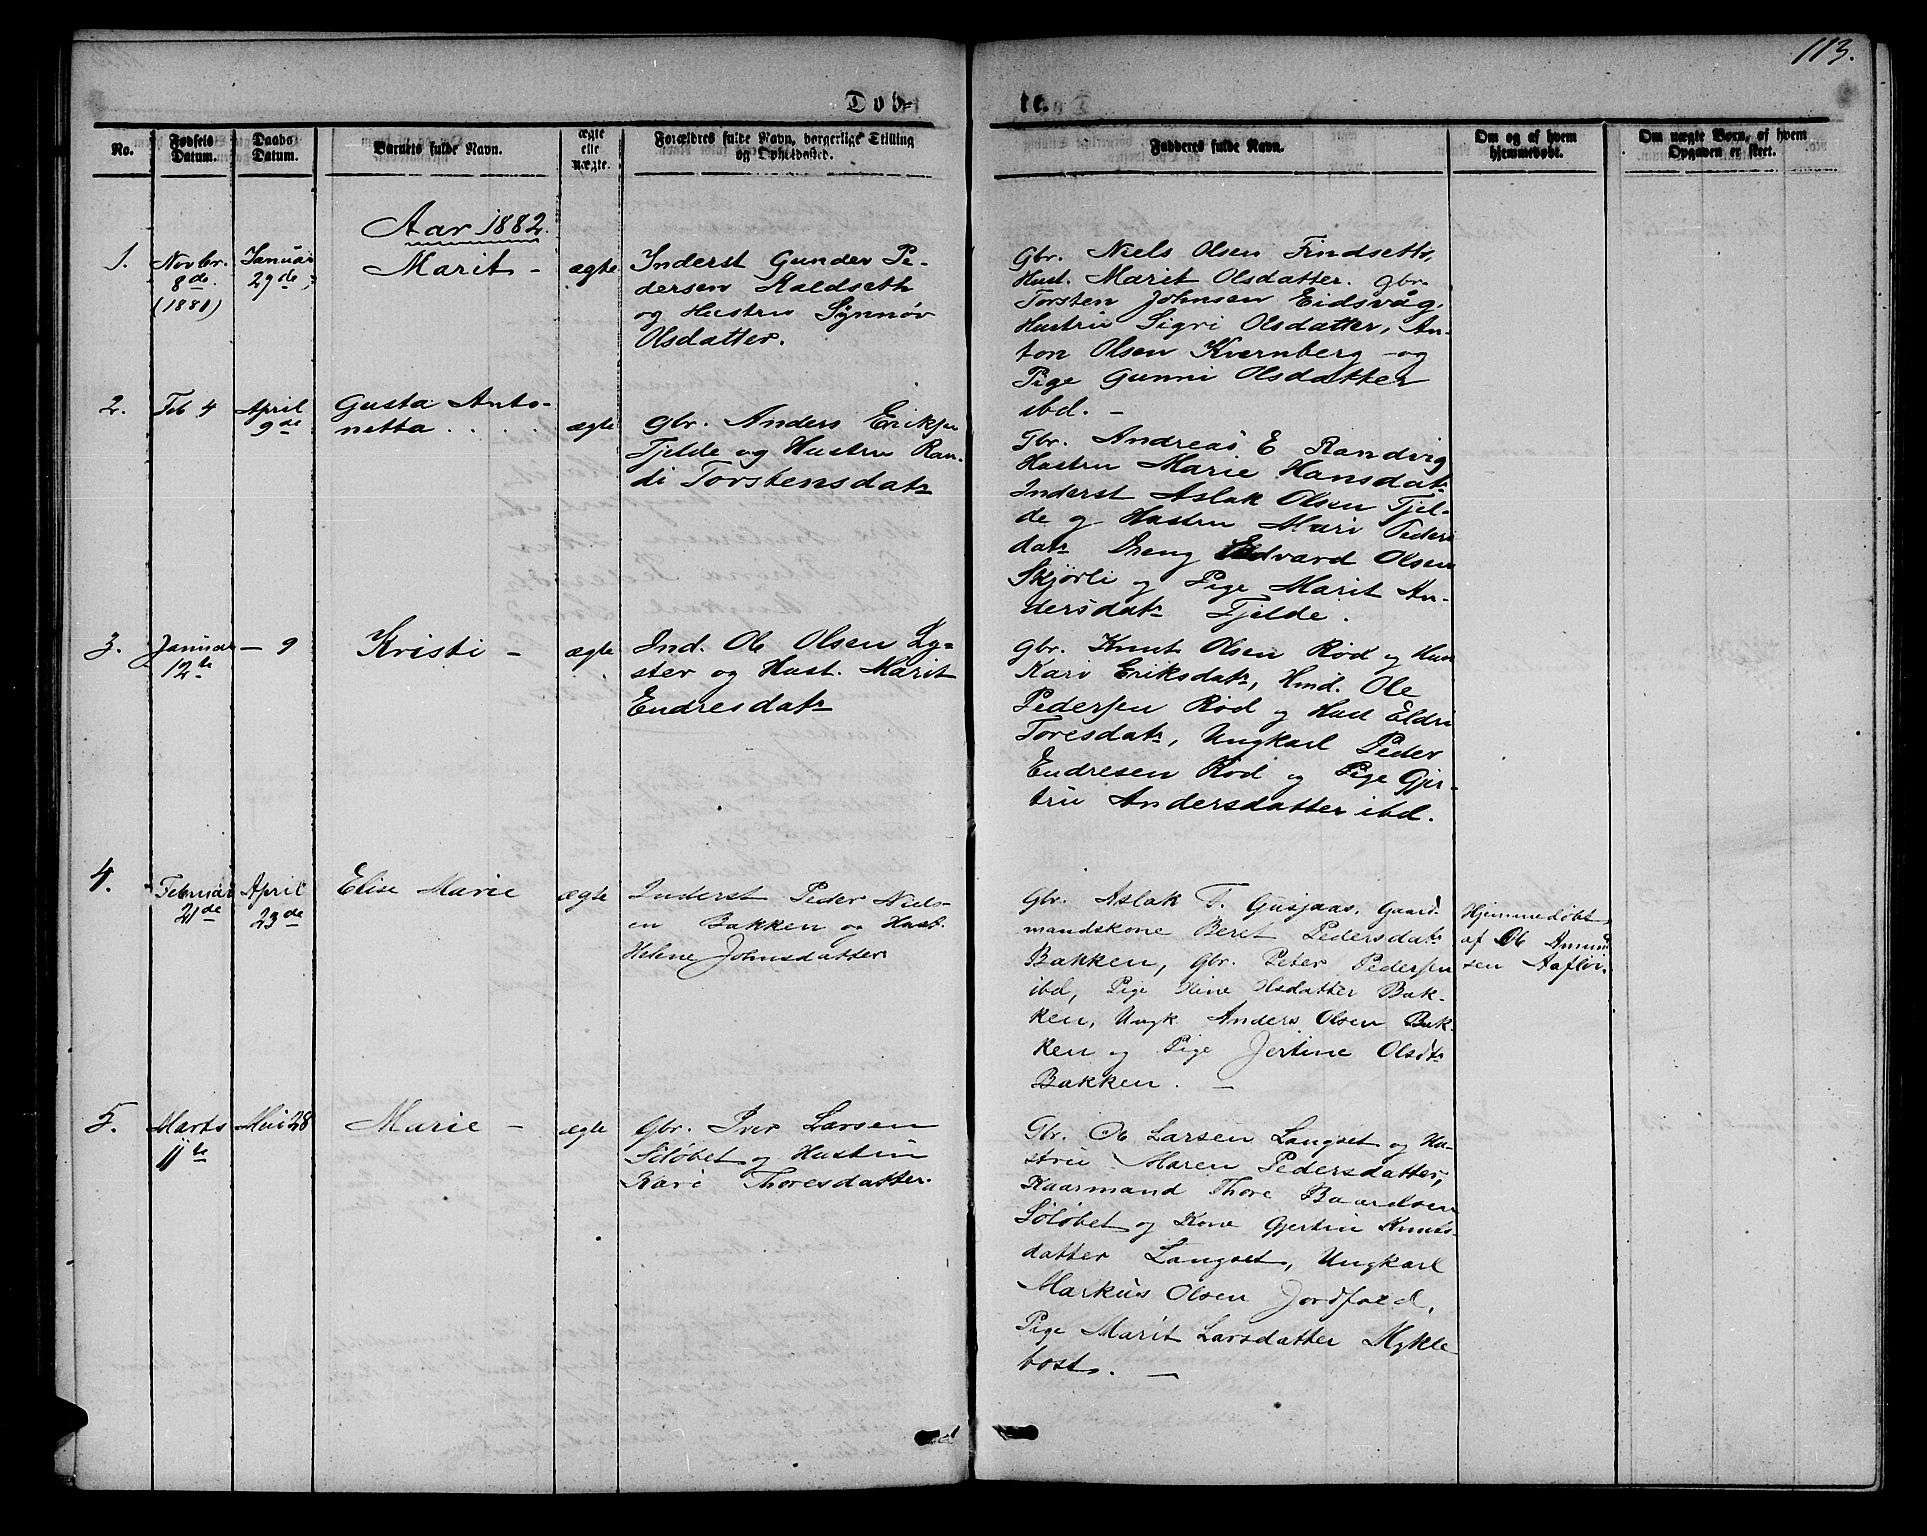 113.
Døb-
te.
No.
Fødsels
Datum.
Daabs
Datum.
Barnets fulde Navn.
ægte
elle
uægte.
Forældres fulde Navn, borgerlige Stilling
og Opholdssted.
Fadderes fulde Navn.
Om og af hvem
hjemmedøbt.
Om uægte Børn, af hvem
Opgaven er skeet.
Aar 1882.
1.
Novbr.
8de
(1881)
Januar
29de
Marit -
ægte
Inderst Gunder Pe-
dersen Kaldseth
og Hustru Synnøv
Olsdatter.
Gbr. Niels Olsen Findseth,
Hust. Marit Olsdatter. Gbr.
Torsten Johnsen Eidsvåg,
Hustru Sigri Olsdatter, An-
ton Olsen Kvernberg og
Pige Gunni Olsdatter
ibd. -
2.
Feb 4
April
9de
Gusta Anto-
netta . . .
ægte
Gbr. Anders Eriksen
Tjelde og Hustru Ran-
di Torstensdatr
Gbr. Andreas E Randvig
Hustru Marie Hansdatr
Inderst Aslak Olsen Tjel-
de og Hustru Mari Peders
datr Dreng Edvard Olsen
Skjørli og Pige Marit An-
dersdatr Tjelde.
3.
Januar
12te
- 9
Kristi -
ægte
Ind. Ole Olsen Ly-
ster og Hust. Marit
Endresdatr
Gbr. Knut Olsen Rød og Hus
Kari Eriksdatr, Hmd. Ole
Pedersen Rød og Hust Eldri
Toresdatr, Ungkarl Peder
Endresen Rød og Pige Gjer-
tru Andersdatter ibd.
4.
Februar
21de
April
23de
Elise Marie
ægte
Inderst Peder Niels-
en Bakken og Hust.
Helene Johnsdatter
Gbr. Aslak T. Gusjaas, Gaard-
mandskone Beret Pedersdatr
Bakken, Gbr. Peter Pedersen
ibd, Pige Oline Olsdatter Bak-
ken, Ungk Anders Olsen Bak-
ken og Pige Jertine Olsdtr
Bakken. -
Hjemmedøbt
af Ole Amun
sen Aafløi.
5.
Marts
11te
Mai 28
Marie -
ægte
Gbr. Iver Larsen
Sølsbet og Hustru
Kari Thoresdatter.
Gbr. Ole Larsen Langset og Hu-
stru Maren Pedersdatter,
Kaarmand Thore Baardsen
Sølsbet og Kone Gjertru Knuts-
datter Langset, Ungkarl
Markus Olsen Jordfald,
Pige Marit Larsdatter Mykle
bost. -